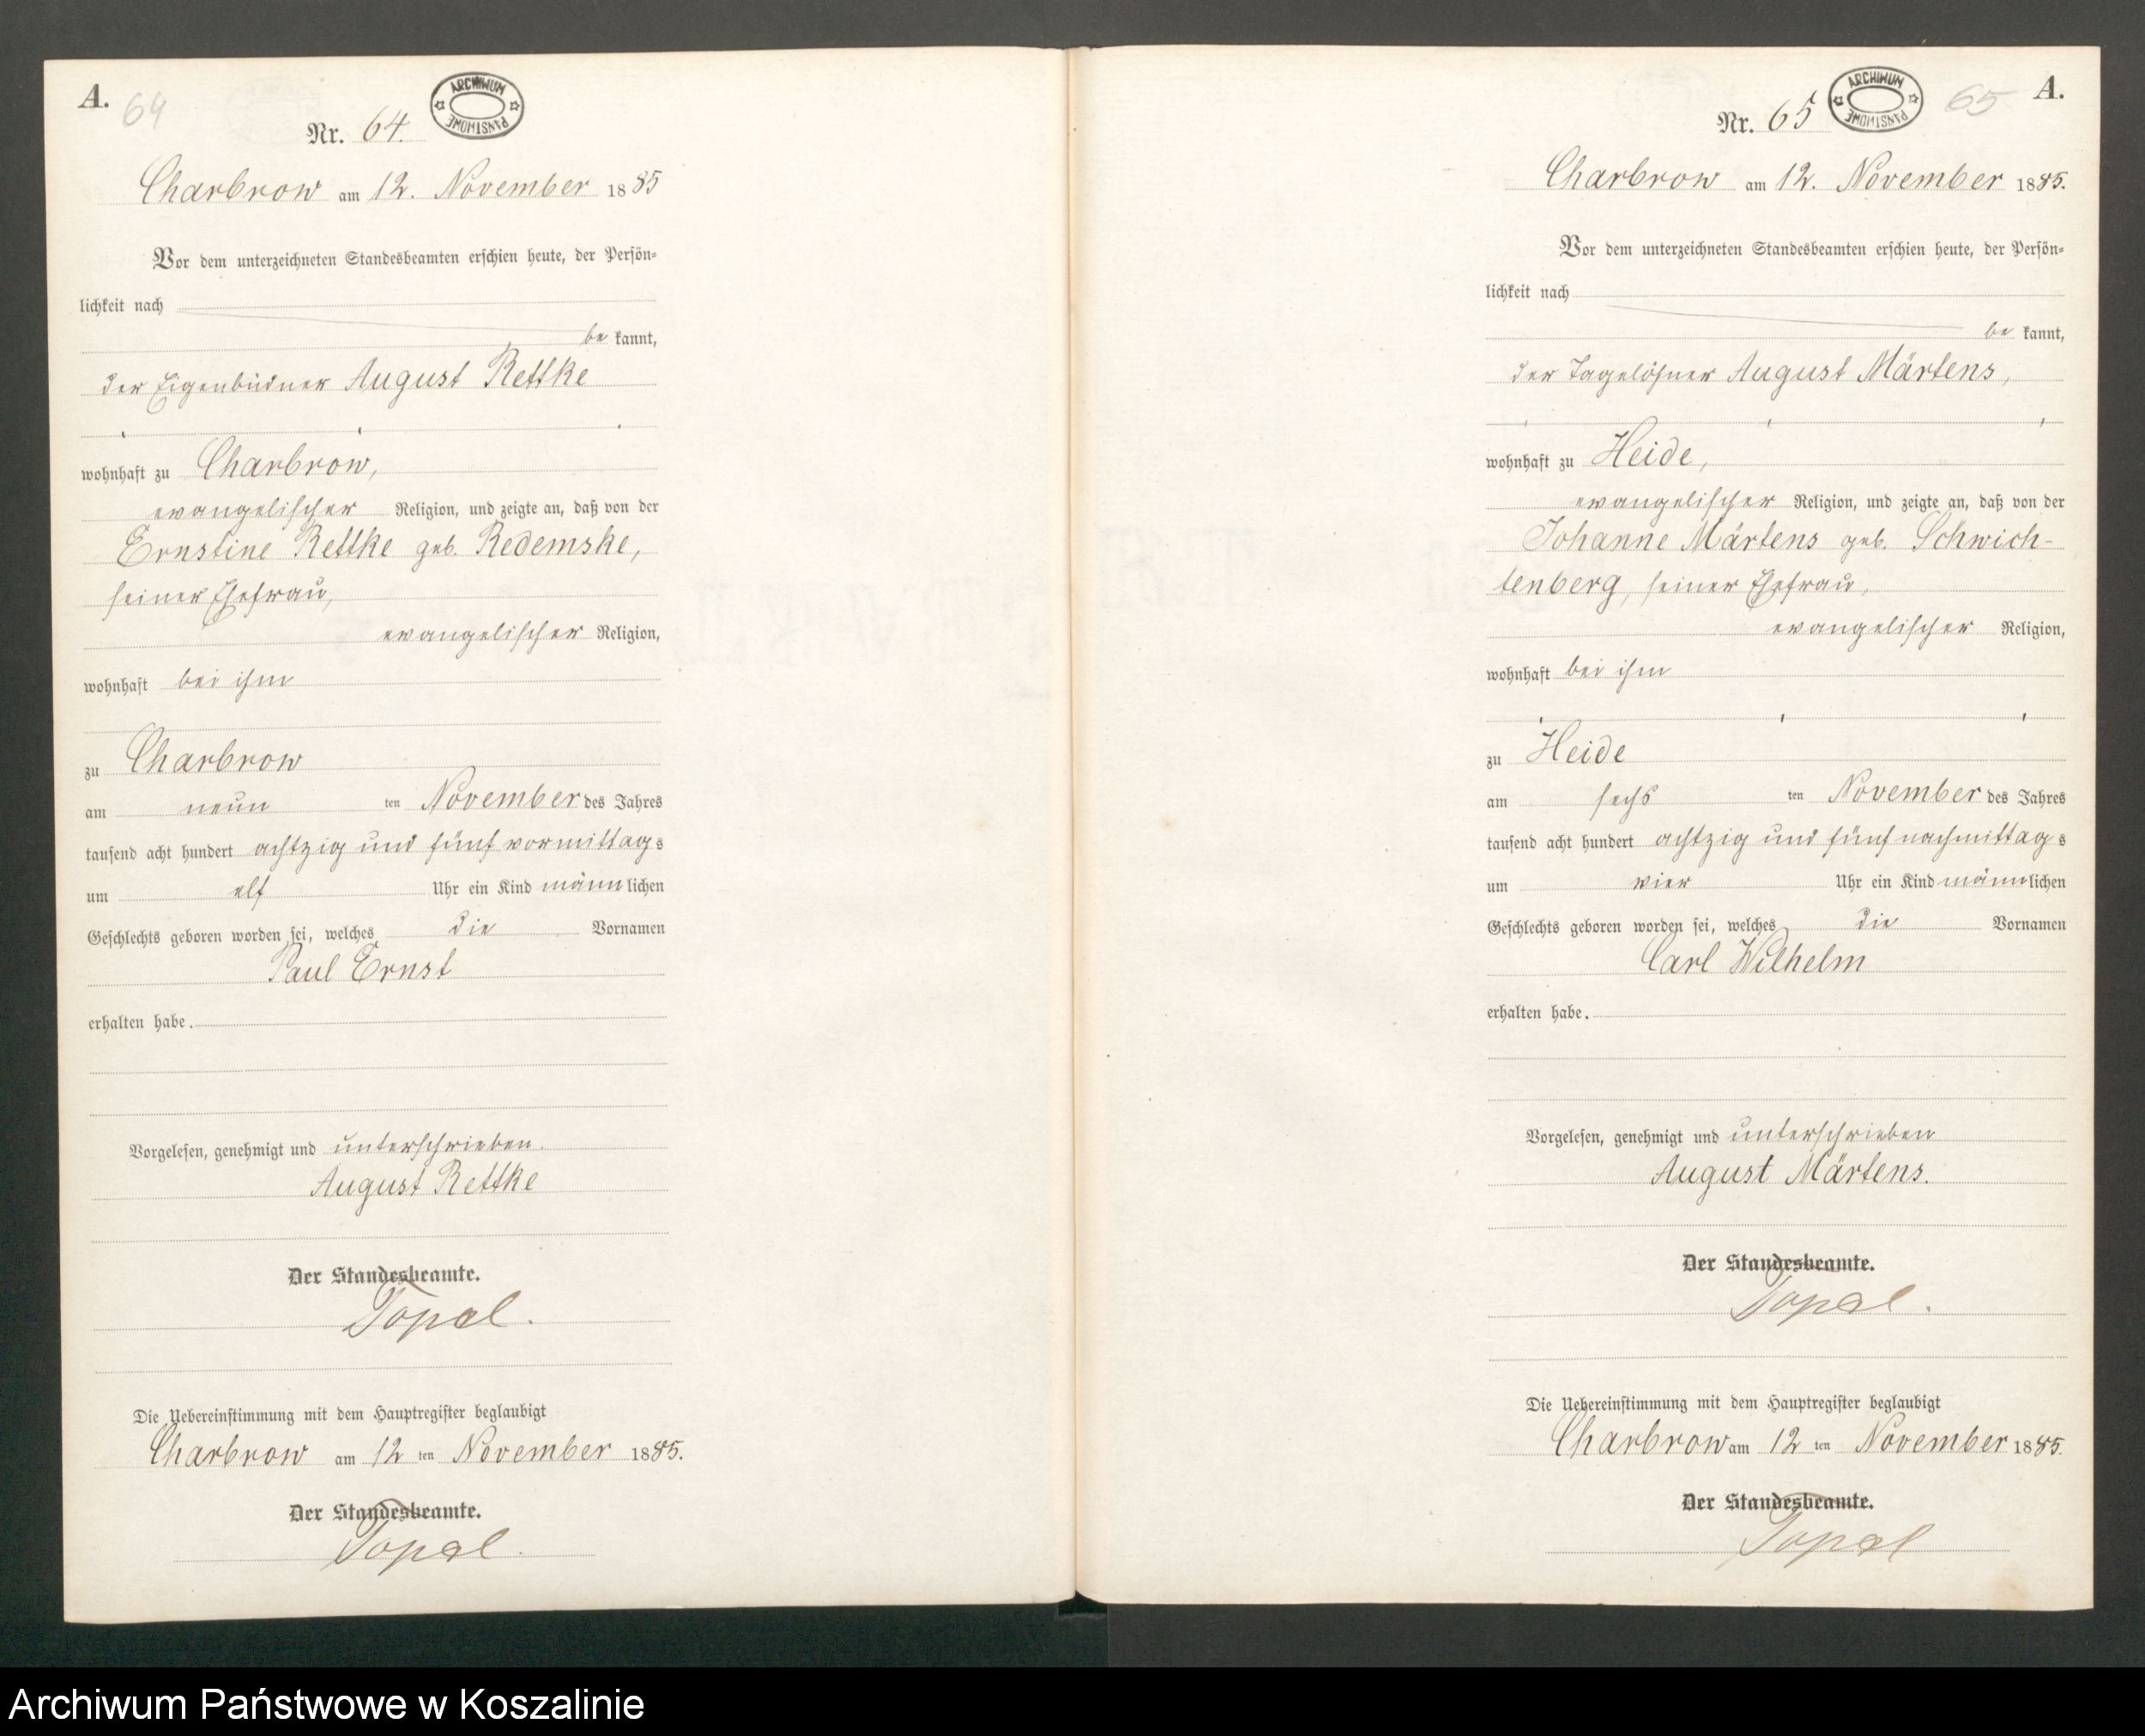 A.
64
Nr. 64.
ARCHIWUM PAŃSTWOWE
Charbrow am 12. November 1885
Vor dem unterzeichneten Standesbeamten erschien heute, der Persön-
lichkeit nach
be kannt,
der Eigenbüdner August Rettke
wohnhaft zu Charbrow,
evangelischer Religion, und zeigte an, daß von der
Ernstine Rettke geb. Redemske,
seiner Ehefrau,
evangelischer Religion,
wohnhaft bei ihm
zu Charbrow
am neun ten November des Jahres
tausend acht hundert achtzig und fünf vormittags
um elf Uhr ein Kind männlichen
Geschlechts geboren worden sei, welches die Vornamen
Paul Ernst
erhalten habe.
Vorgelesen, genehmigt und unterschrieben.
August Rettke
Der Standesbeamte.
Topel.
Die Uebereinstimmung mit dem Hauptregister beglaubigt
Charbrow am 12 ten November 1885.
Der Standesbeamte.
Topel.
A.
65
Nr. 65
ARCHIWUM PAŃSTWOWE
Charbrow am 12. November 1885.
Vor dem unterzeichneten Standesbeamten erschien heute, der Persön-
lichkeit nach
be kannt,
der Tagelöhner August Märtens,
wohnhaft zu Heide,
evangelischer Religion, und zeigte an, daß von der
Johanne Märtens geb. Schwich-
tenberg, seiner Ehefrau,
evangelischer Religion,
wohnhaft bei ihm
zu Heide
am sechs ten November des Jahres
tausend acht hundert achtzig und fünf nachmittags
um vier Uhr ein Kind männlichen
Geschlechts geboren worden sei, welches die Vornamen
Carl Wilhelm
erhalten habe.
Vorgelesen, genehmigt und unterschrieben
August Märtens.
Der Standesbeamte.
Topel.
Die Uebereinstimmung mit dem Hauptregister beglaubigt
Charbrow am 12 ten November 1885.
Der Standesbeamte.
Topel
Archiwum Państwowe w Koszalinie